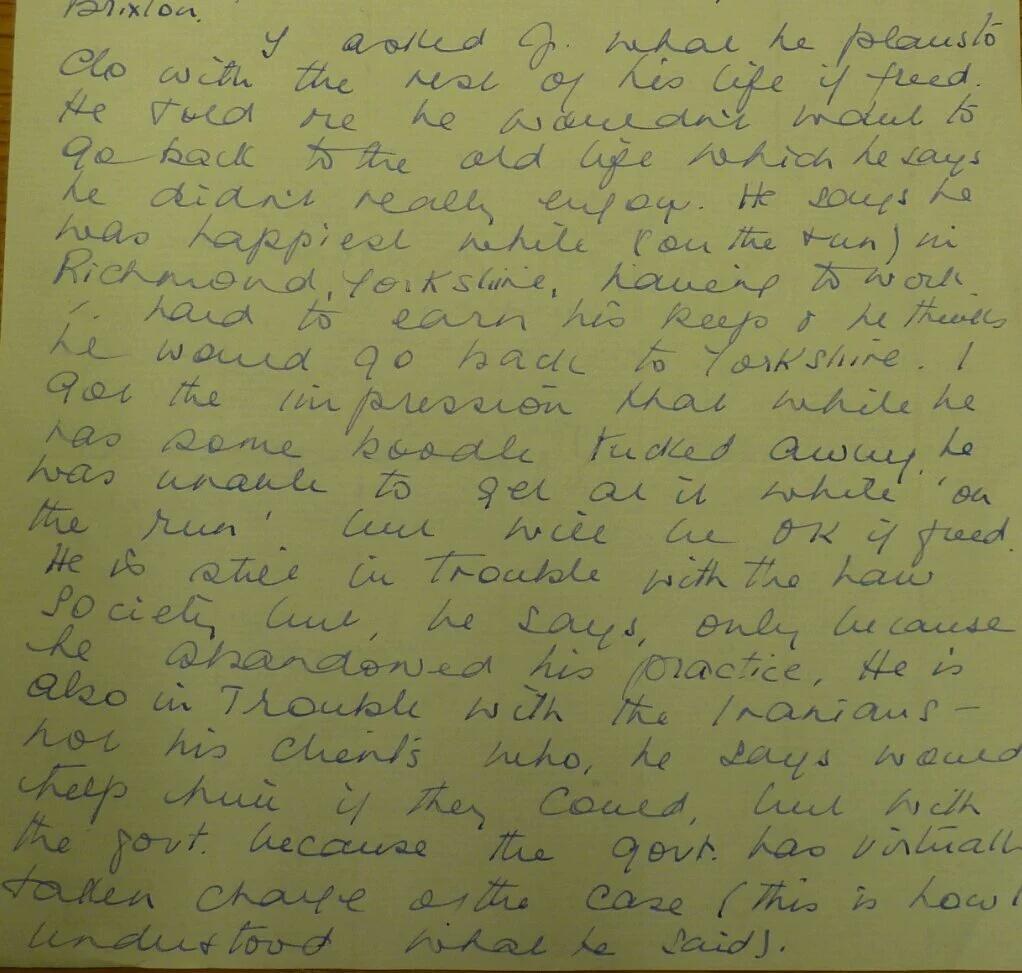 Brixton.
I asked J. what he plans to
do with the rest of his life if freed.
He told me he wouldn't want to
go back to the old life which he says
he didn't really enjoy. He says he
was happiest while (on the run) in
Richmond, Yorkshire, having to work
hard to earn his keep & he thinks
he would go back to Yorkshire. I
got the impression that while he
has some boodle tucked away, he
was unable to get at it while 'on
the run' but will be OK if freed.
He is still in trouble with the Law
Society but, he says, only because
he abandoned his practice. He is
also in Trouble with the Iranians –
not his clients who, he says would
help him if they could, but with
the govt. because the govt. has virtually
taken charge of the case (this is how I
understood what he said).